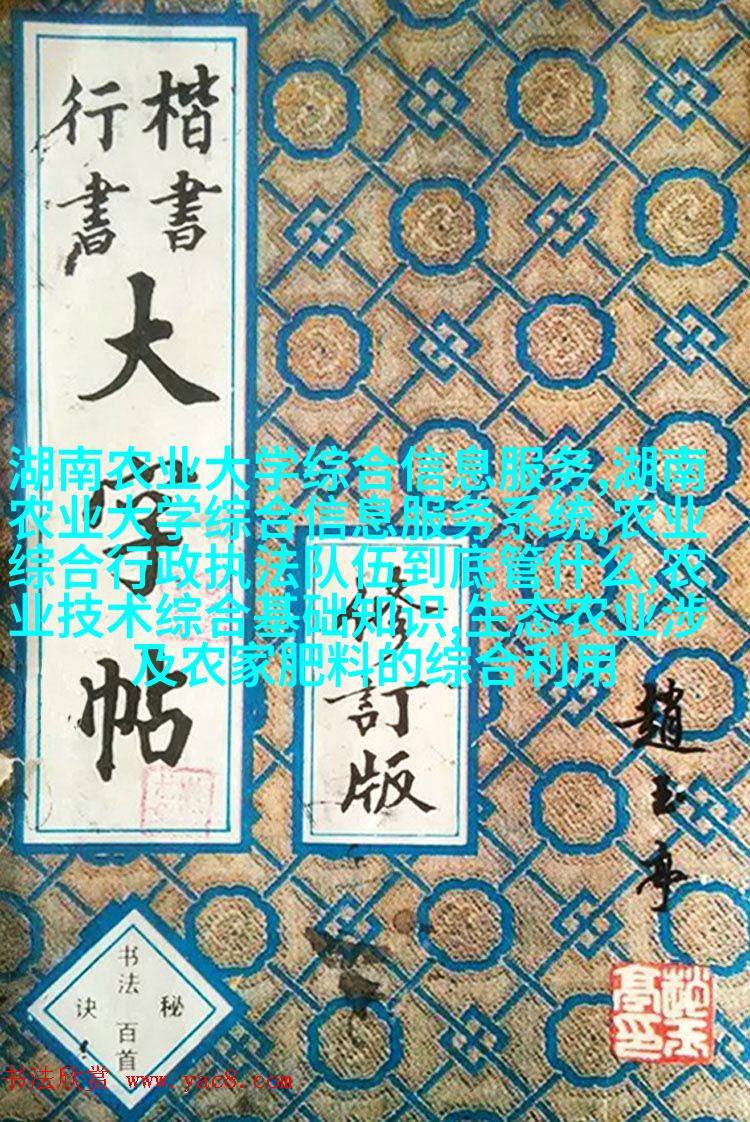 楷書
行書
大字帖
湖南农业大学综合信息服务,湖南
农业大学综合信息服务系统,农业
综合行政执法队伍到底管什么,农
业技术综合基础知识,生态农业涉
及农家肥料的综合利用
修訂版
趙玉亭
书法
秘诀
百首
书法欣赏 www.yac8.com